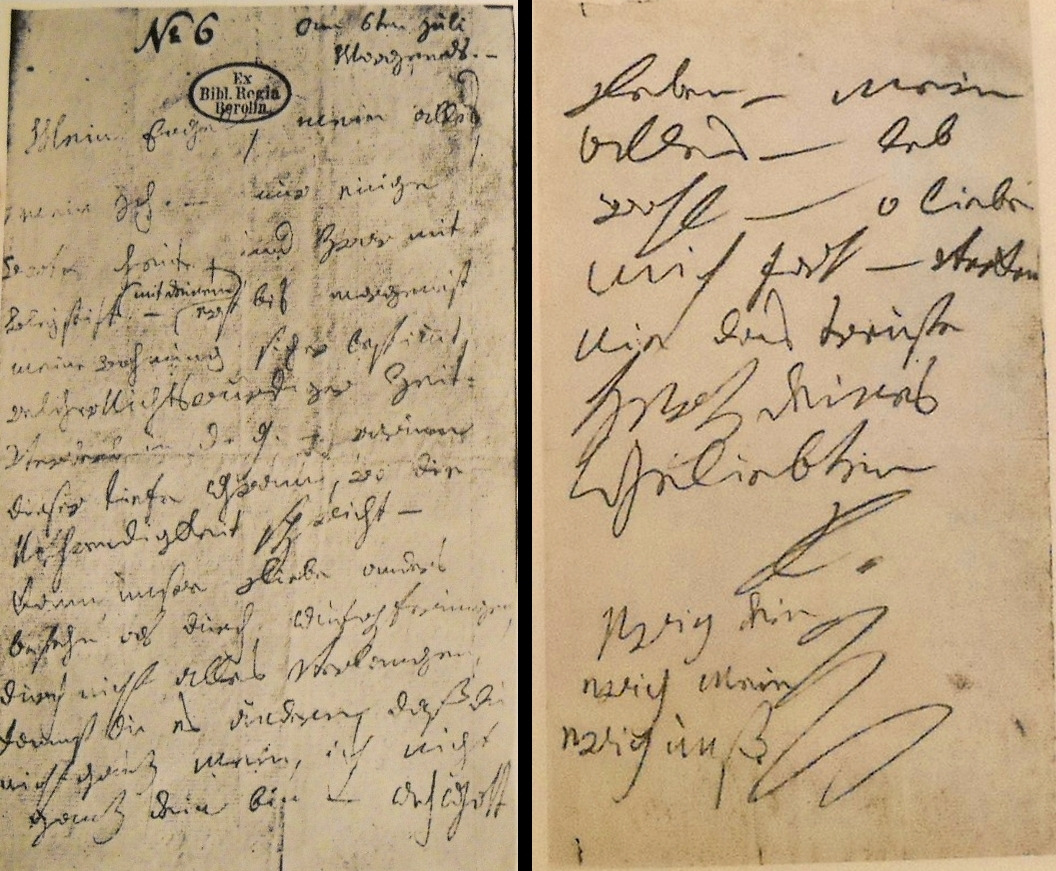 No 6
am 6ten Juli
Morgends. –
Ex
Bibl. Regia
Berolin.
Mein Engel, mein alles,
mein Ich. – nur einige
Worte heute, und zwar mit
Bleystift (mit deinem) – erst bis morgen ist
meine Wohnung sicher bestimt,
welcher Nichtswürdiger Zeit-
verderb in d. g. – warum
dieser tiefe Gram, wo die
Nothwendigkeit spricht –
Kann unsre Liebe anders
bestehn als durch Aufopferungen,
durch nicht alles verlangen,
kannst du es ändern, daß du
nicht ganz mein, ich nicht
ganz dein bin – Ach Gott
Leben – mein
alles – leb
wohl – o liebe
mich fort – verken
nie das treuste
Herz deines
Geliebten
L.
ewig dein
ewig mein
ewig unß